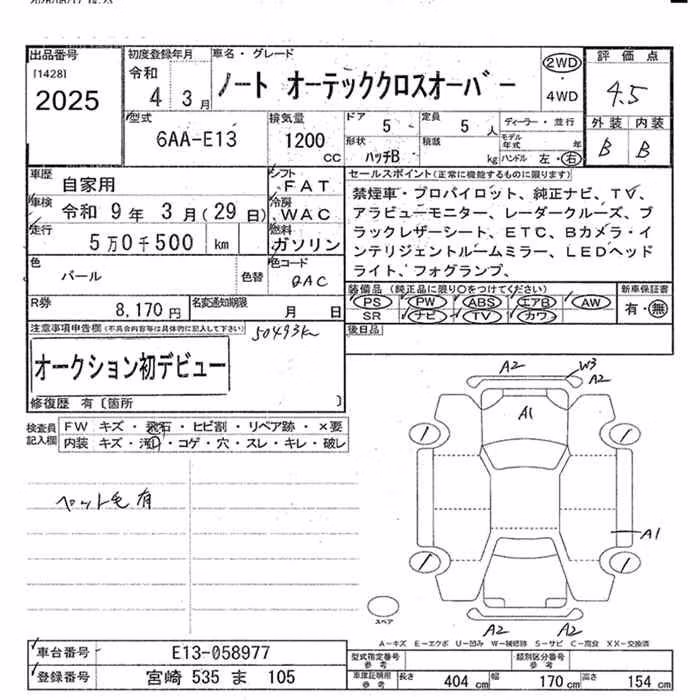 出品番号 [1428] 2025
初度登録年月 令和 4 3月
車名・グレード ノート オーテッククロスオーバー
2WD・4WD
評価点 4.5
外装 内装
B B
型式 6AA-E13
排気量 1200 CC
ドア 5
定員 5 人
形状 ハッチB
積載 kg
ディーラー・並行
モデル年式 年
ハンドル 左・右
車歴 自家用
シフト FAT
車検 令和 9年 3月(29日)
冷房 WAC
走行 5万0千500 km
燃料 ガソリン
色 パール 色替
色コード QAC
R券 8,170円
名変通知期限 月 日
セールスポイント(正常に機能するものに限ります)
禁煙車・プロパイロット、純正ナビ、TV、
アラビューモニター、レーダークルーズ、ブ
ラックレザーシート、ETC、Bカメラ・イ
ンテリジェントルームミラー、LEDヘッド
ライト、フォグランプ、
装備品(純正品に限り○をつけてください)
PS PW ABS エアB AW
SR ナビ TV カワ
新車保証書 有・無
後日品
注意事項申告欄(不具合内容等は具体的に記入して下さい)
50493km
オークション初デビュー
修復歴 有〔箇所 〕
検査員記入欄
FW キズ・飛石・ヒビ割・リペア跡・×要
内装 キズ・汚・コゲ・穴・スレ・キレ・破レ
ペット毛有
A2 W3 A2
A1
A1
A2 A2
スペア
A-キズ E-エクボ U-凹み W-補修跡 S-サビ C-腐食 XX-交換済
車台番号 E13-058977
登録番号 宮崎 535 ま 105
型式指定番号 参考
類別区分番号 参考
車庫証明用 参考
長さ 404 cm 幅 170 cm 高さ 154 cm